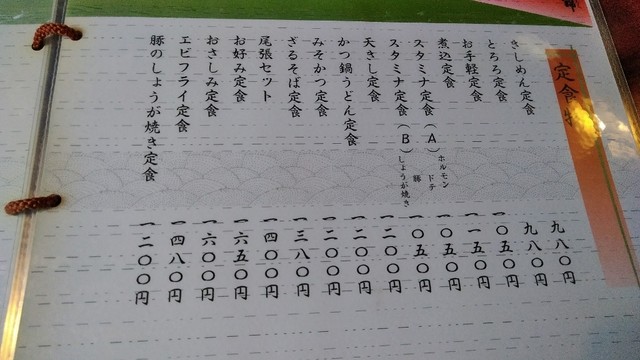 定食物
きしめん定食 九八〇円
とろろ定食 九八〇円
お手軽定食 一〇五〇円
煮込定食 一一五〇円
スタミナ定食（A）ホルモン ドテ 一〇五〇円
スタミナ定食（B）豚しょうが焼き 一〇五〇円
天きし定食 一二〇〇円
かつ鍋うどん定食 一二〇〇円
みそかつ定食 一二〇〇円
ざるそば定食 一三八〇円
尾張セット 一四〇〇円
お好み定食 一六五〇円
おさしみ定食 一六〇〇円
エビフライ定食 一四八〇円
豚のしょうが焼き定食 一二〇〇円